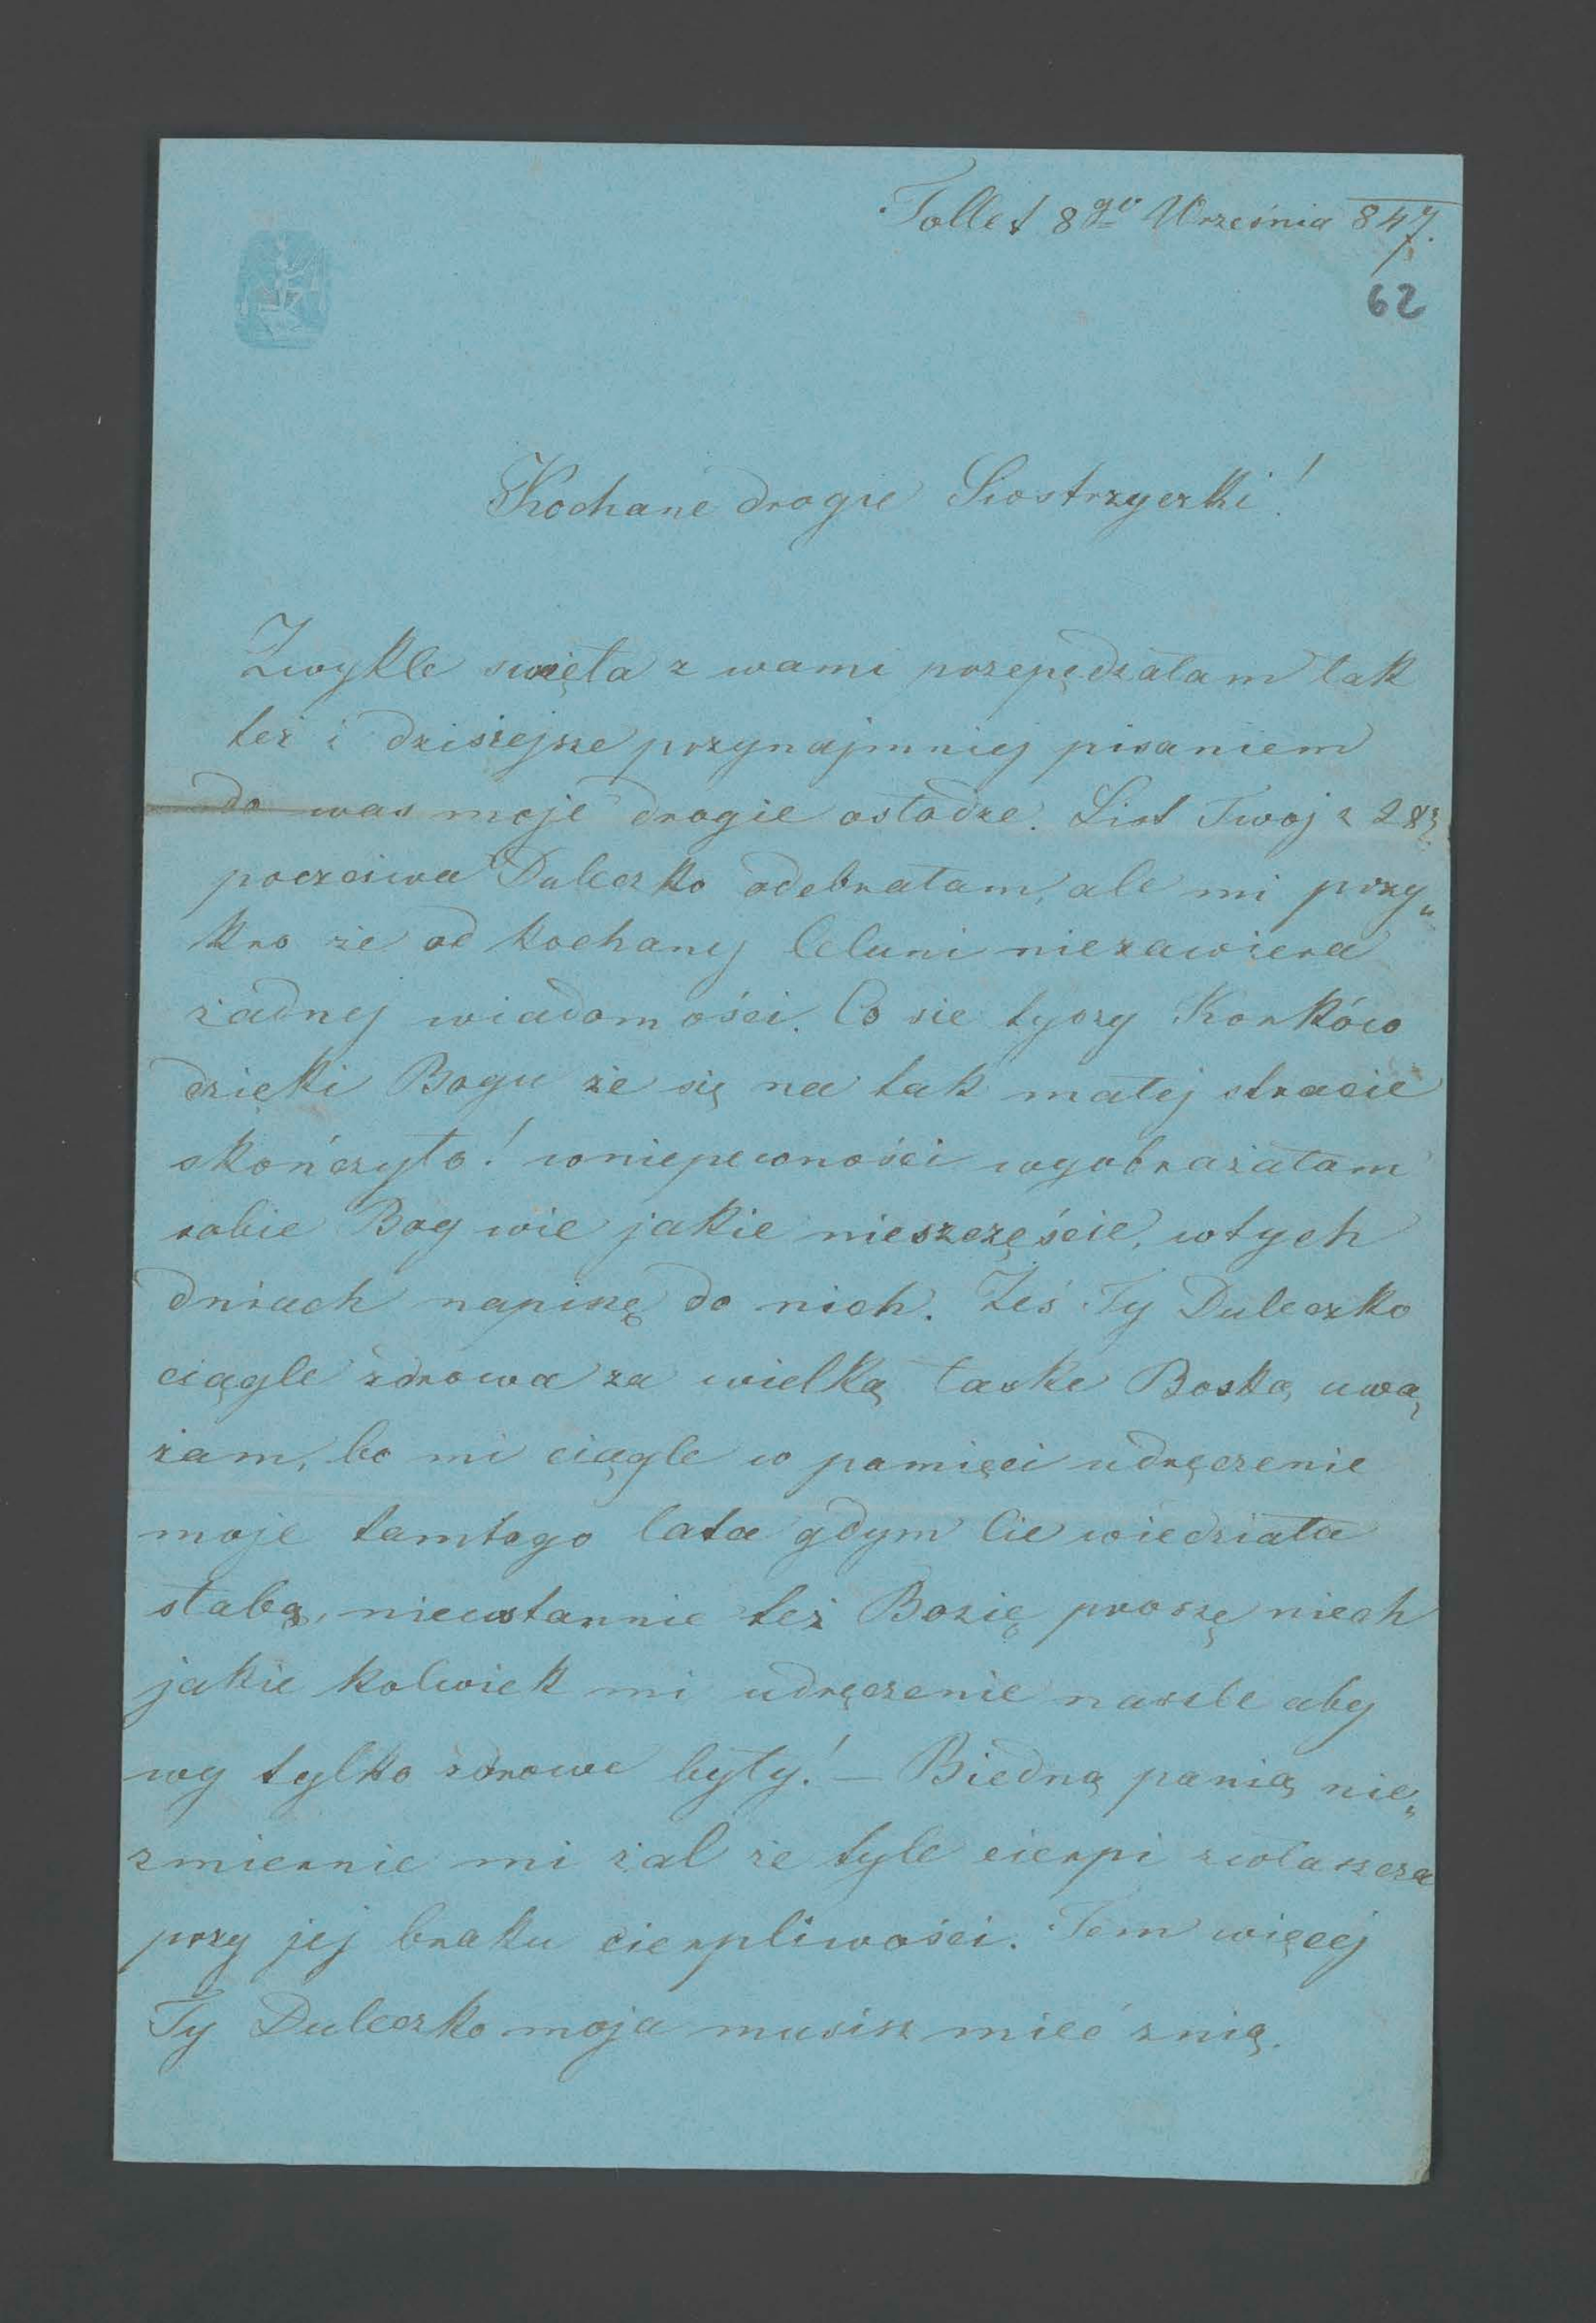 Tollet 8go Września 847.
62
Kochane drogie Siostrzyczki!
Zwykle święta z wami przepędzałam tak
też i dzisiejsze przynajmniej pisaniem
do was moje drogie osłodzę. List Twoj z 28.
poczciwa Duleczko odebrałam, ale mi przy„
kro że od kochanej Celuni niezawiera
żadnej wiadomości. Co sie tyczy Korków
dzięki Bogu że się na tak małej stracie
skończyło! wniepewności wyobrażałam
sobie Bog wie jakie nieszczęście, wtych
dniach napiszę do nich. Żeś Ty Duleczko
ciągle zdrowa za wielką łaske Boską uwa„
żam, bo mi ciągle w pamięci udręczenie
moje tamtego lata gdym Cie wiedziała
słabą, nieustannie też Bozię proszę niech
jakie kolwiek mi udręczenie naszle aby
wy tylko zdrowe były! — Biedną panią nie„
zmiernie mi żal że tyle cierpi zwłaszcza
przy jej braku cierpliwości. Tem więcej
Ty Duleczko moja musisz mieć znią.